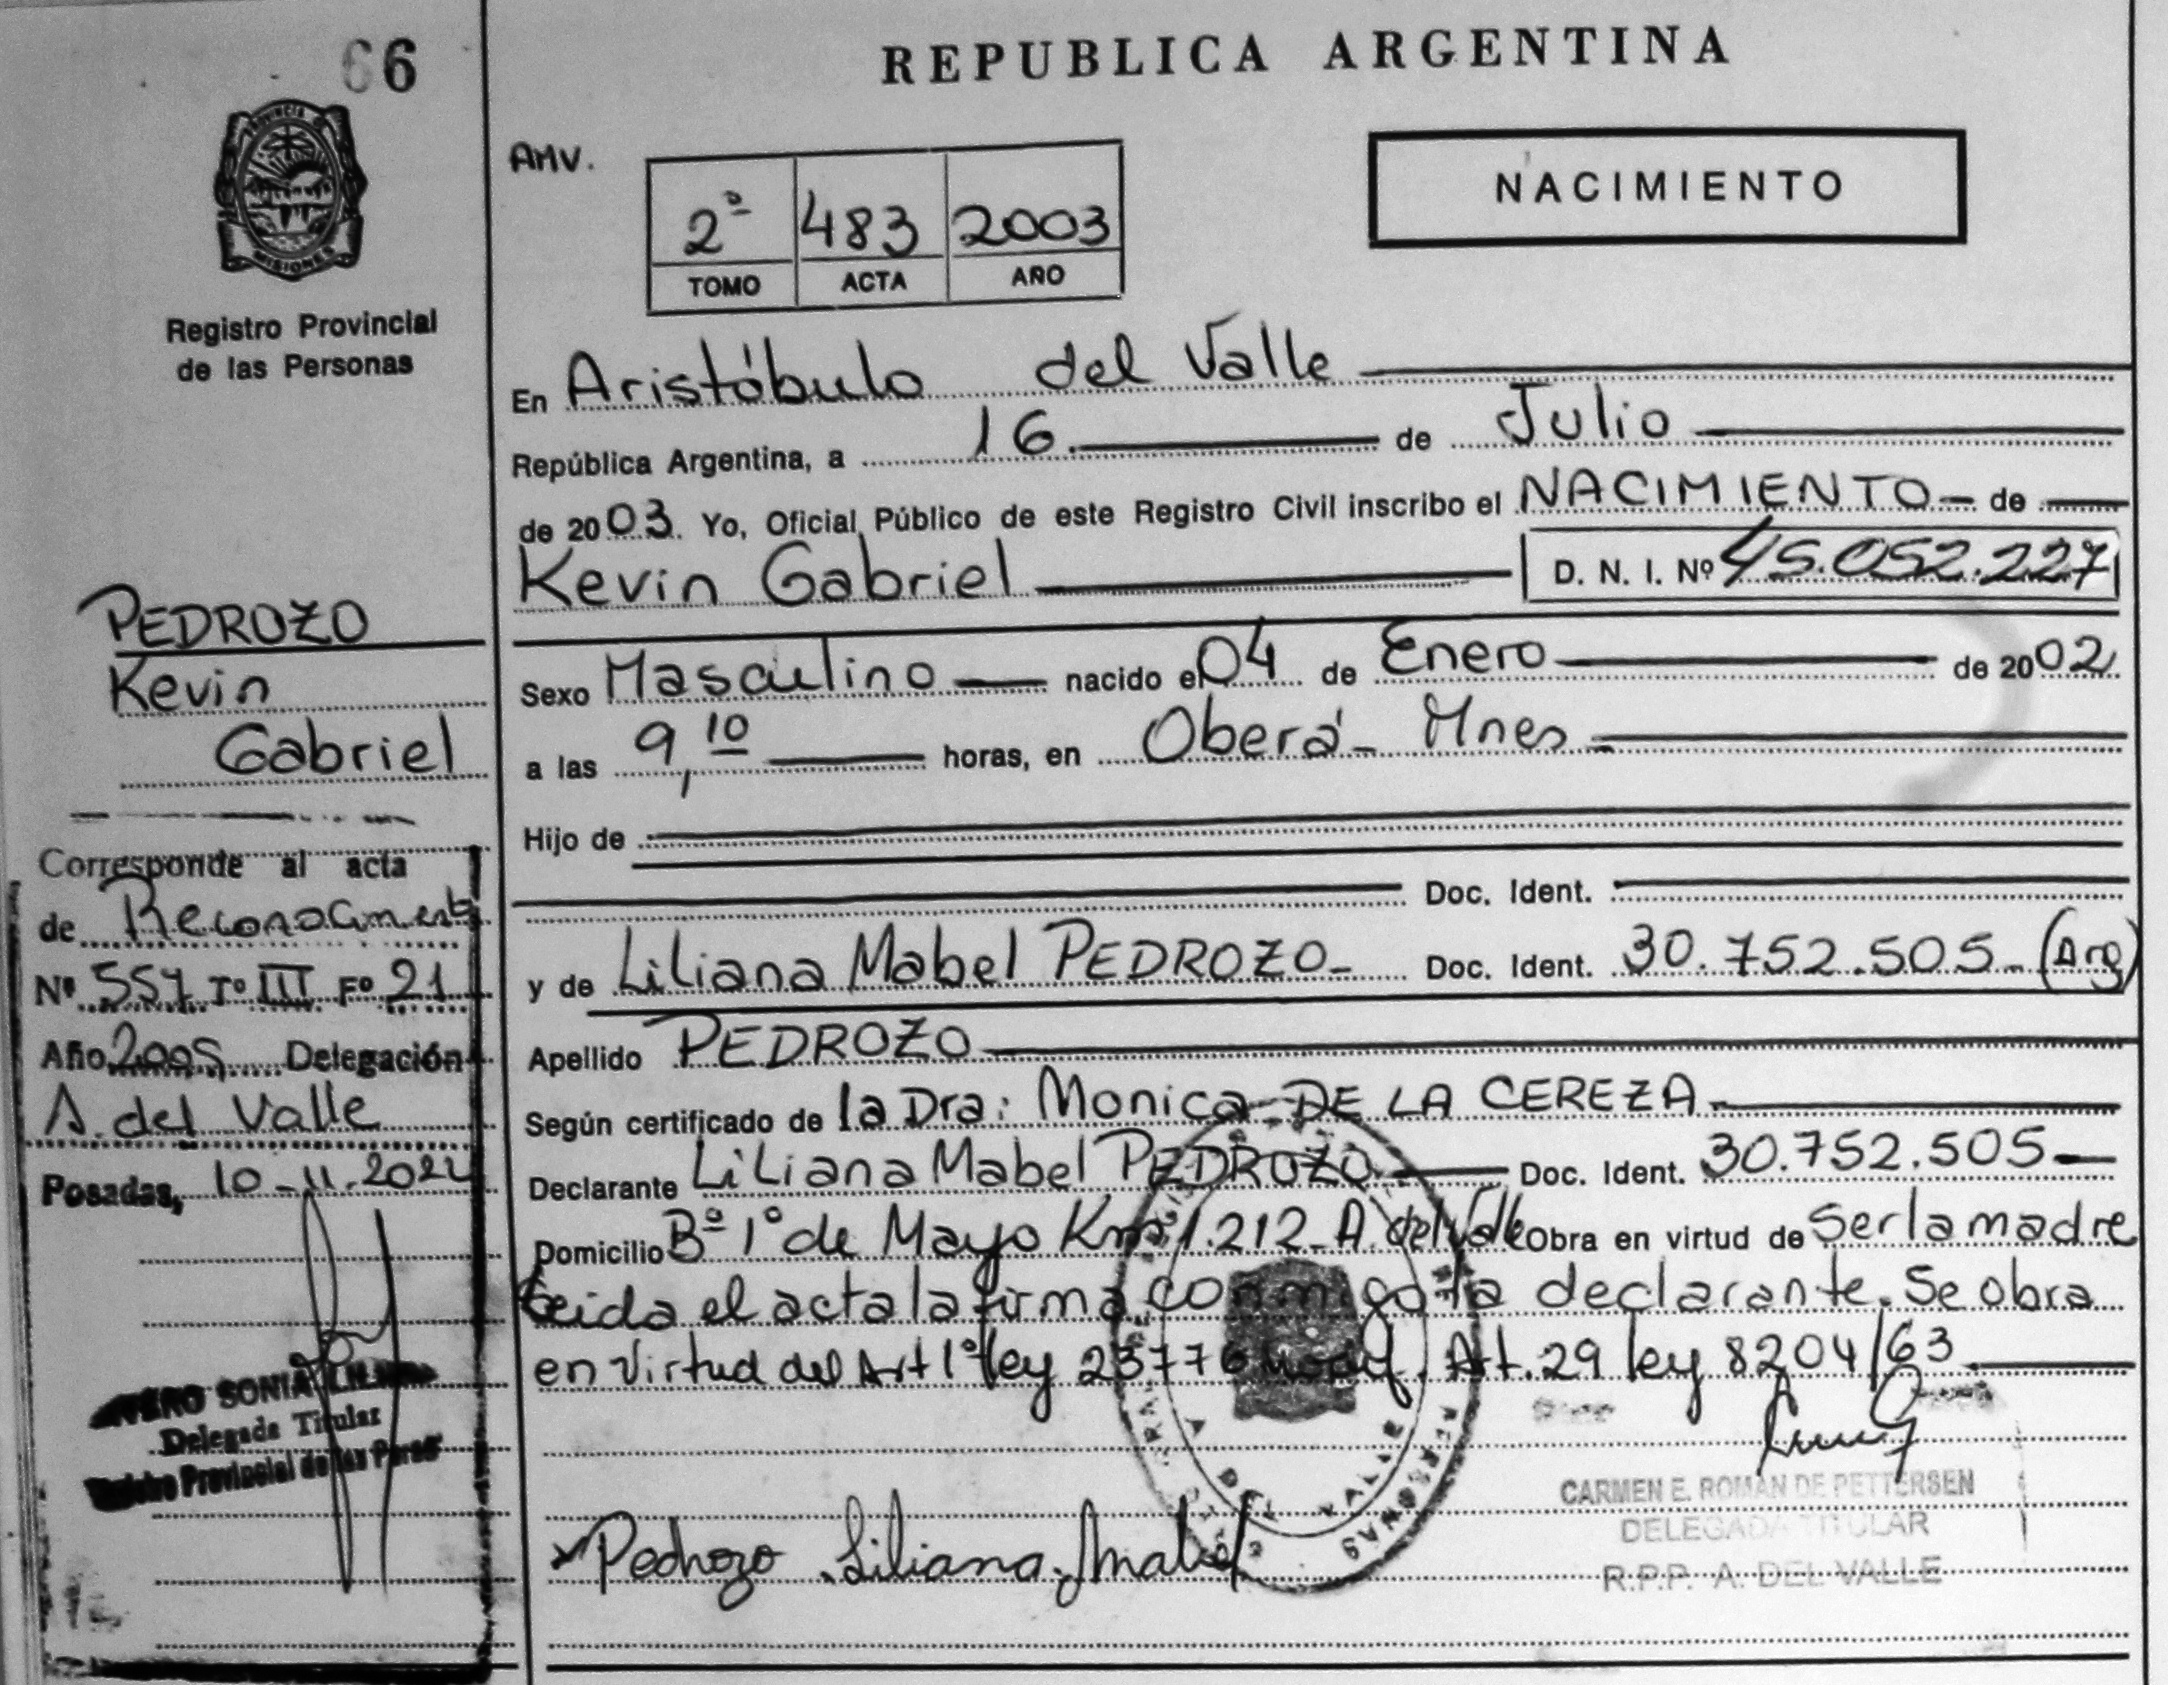 66
PROVINCIA DE
MISIONES
Registro Provincial
de las Personas
PEDROZO
Kevin
Gabriel
Corresponde al acta
de Reconocimient
Nº 557 Tº III Fº 21
Año 2005 Delegación
A. del Valle
Posadas, 10-11-2024
SONIA
Delegada Titular
Provincial de las Perso
REPUBLICA ARGENTINA
AMV.
NACIMIENTO
2º 483 2003
TOMO ACTA AÑO
En Aristóbulo del Valle
República Argentina, a 16 de Julio
de 2003. Yo, Oficial Público de este Registro Civil inscribo el NACIMIENTO de
Kevin Gabriel D. N. I. Nº 45.052.227
Sexo Masculino nacido el 04 de Enero de 2002
a las 9,10 horas, en Oberá - Mnes
Hijo de
Doc. Ident.
y de Liliana Mabel PEDROZO Doc. Ident. 30.752.505 (Arg)
Apellido PEDROZO
Según certificado de la Dra: Monica DE LA CEREZA
Declarante Liliana Mabel PEDROZO Doc. Ident. 30.752.505
Domicilio Bº 1º de Mayo Km 1.212 A. del Valle Obra en virtud de Ser la madre
Leida el acta la firma conmigo la declarante. Se obra
en virtud del Art 1º ley 23776 modif. Art. 29 ley 8204/63
CARMEN E. ROMAN DE PETTERSEN
DELEGADA TITULAR
R.P.P. A. DEL VALLE
Pedrozo Liliana Mabel
A DEL VALLE
PERSONAS